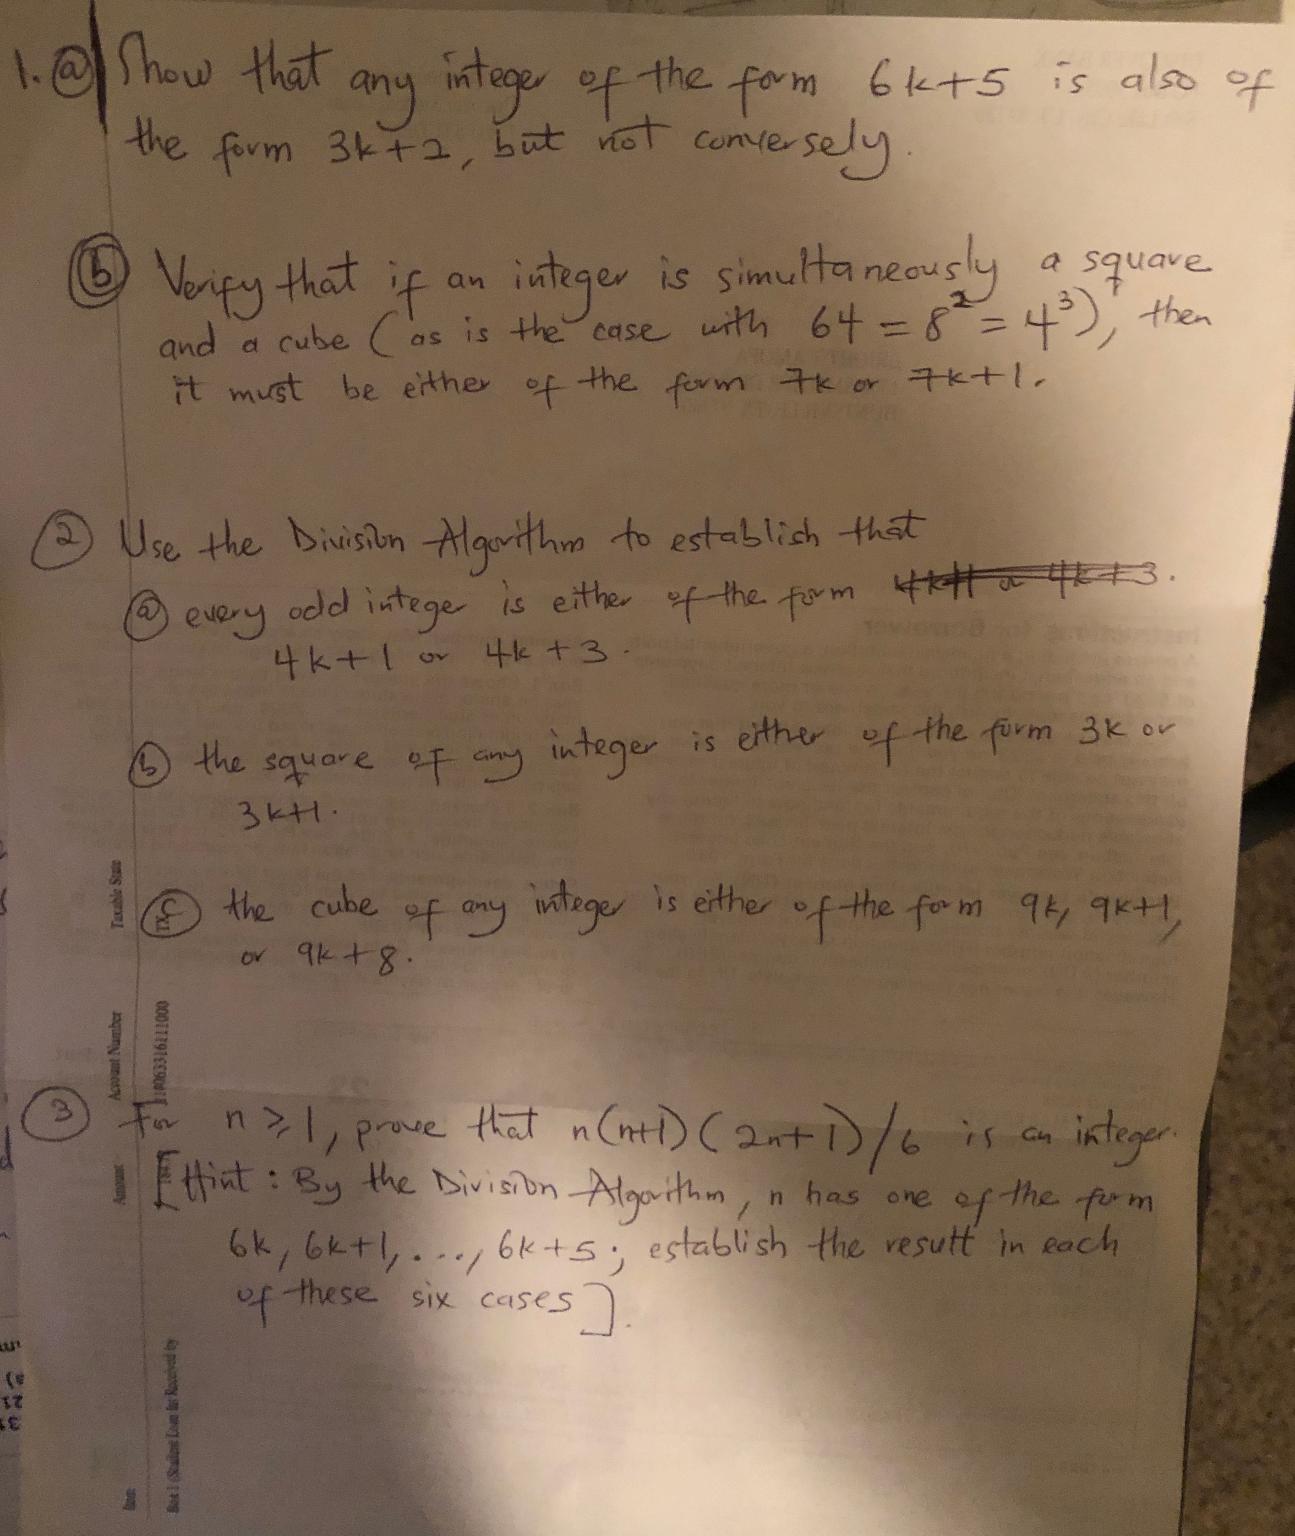 1. (a) Show that any integer of the form 6k+5 is also of
the form 3k+2, but not conversely.
(b) Verify that if an integer is simultaneously a square
and a cube (as is the case with 64 = 8² = 4³), then
it must be either of the form 7k or 7k+1.
(2) Use the Division Algorithm to establish that
(a) every odd integer is either of the form 4k+1 or 4k+3.
4k+1 or 4k+3.
(b) the square of any integer is either of the form 3k or
3k+1.
(c) the cube of any integer is either of the form 9k, 9k+1,
or 9k+8.
(3) If n ≥ 1, prove that n(n+1)(2n+1)/6 is an integer.
[Hint: By the Division Algorithm, n has one of the form
6k, 6k+1, ..., 6k+5; establish the result in each
of these six cases].
Taxable State
Account Number
Amount
Item
Box 1 (Student Loan Int Received by